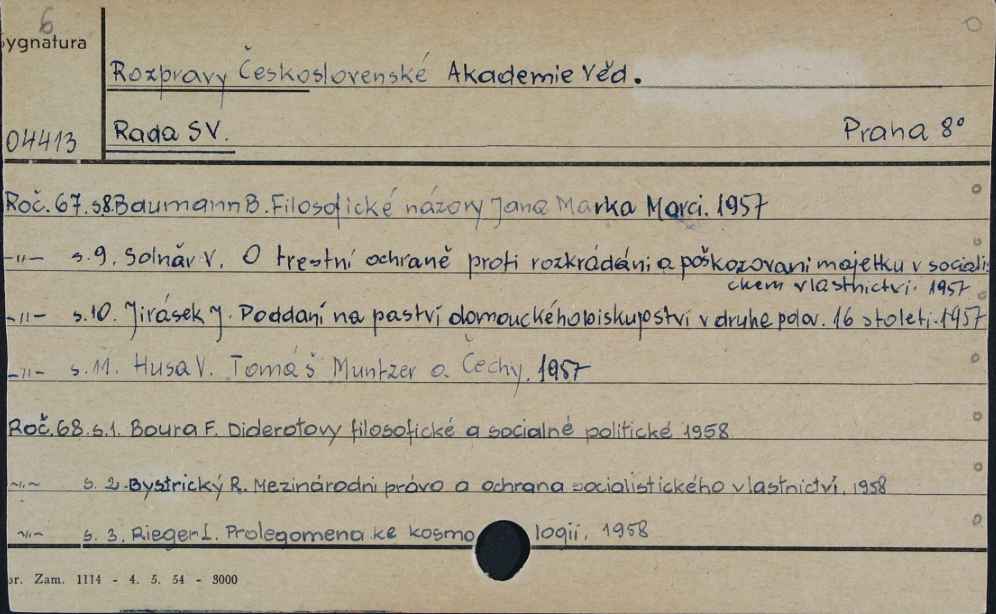 6
ygnatura
Rozpravy Československé Akademie Věd.
04413
Rada SV.
Praha 8°
Roč. 67. s8. Baumann B. Filosofické názory Jana Marka Marci. 1957
-"- s.9. Solnăr V. O trestní ochraně proti rozkrádáni a poškozovani majetku v sociali
ckem vlastnictví. 1957
-"- s.10. Jirásek J. Poddaní na paství olomouckého biskupství v druhe polov. 16 stoleti. 1957
-"- s.11. Husa V. Tomáš Muntzer a Čechy. 1957
Roč. 68. s.1. Boura F. Diderotovy filosofické a socialné politické 1958
-"- s. 2. Bystrický R. Mezinárodni právo a ochrana socialistického vlastnictví. 1958
-"- s. 3. Rieger L. Prolegomena ke kosmo logií. 1958
or. Zam. 1114 - 4. 5. 54 - 3000